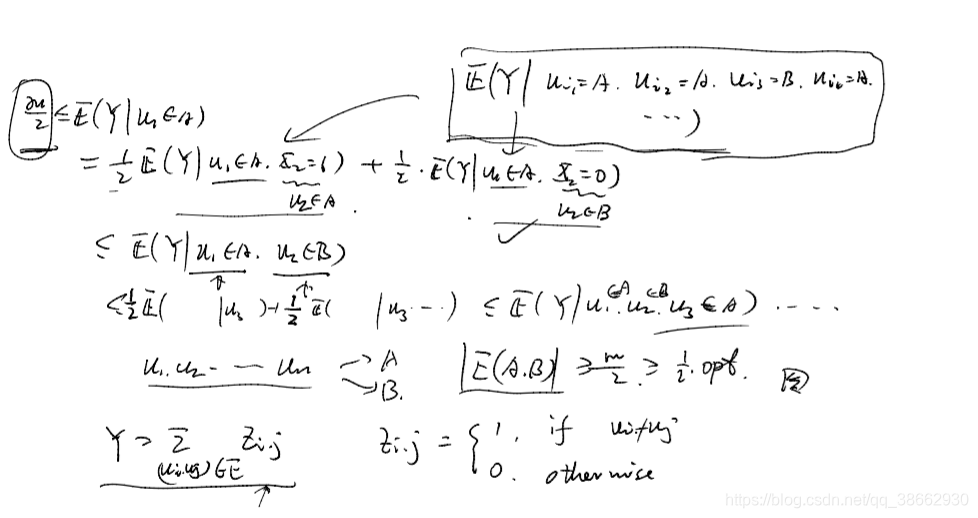 E(Y| u_{i1}=A. u_{i2}=A. u_{i3}=B. u_{i4}=A.
⋯)
m/2 ≤ E(Y|u₁∈A)
= 1/2 E(Y|u₁∈A. X₂=1) + 1/2 · E(Y|u₁∈A. X₂=0)
u₂∈A . u₂∈B
≤ E(Y|u₁∈A. u₂∈B)
≤ 1/2 E( |u₃ ) + 1/2 E( |u₃ ⋯) ≤ E(Y|u₁∈A. u₂∈B. u₃∈A) ⋯⋯
u₁.u₂.⋯ — uₙ → A
→ B.
|E(A.B)| ≥ m/2 ≥ 1/2 · opt.
Y = Σ z_{i.j} z_{i.j} = { 1. if u_i≠u_j
(u_i.u_j)∈E 0. otherwise
https://blog.csdn.net/qq_38662930